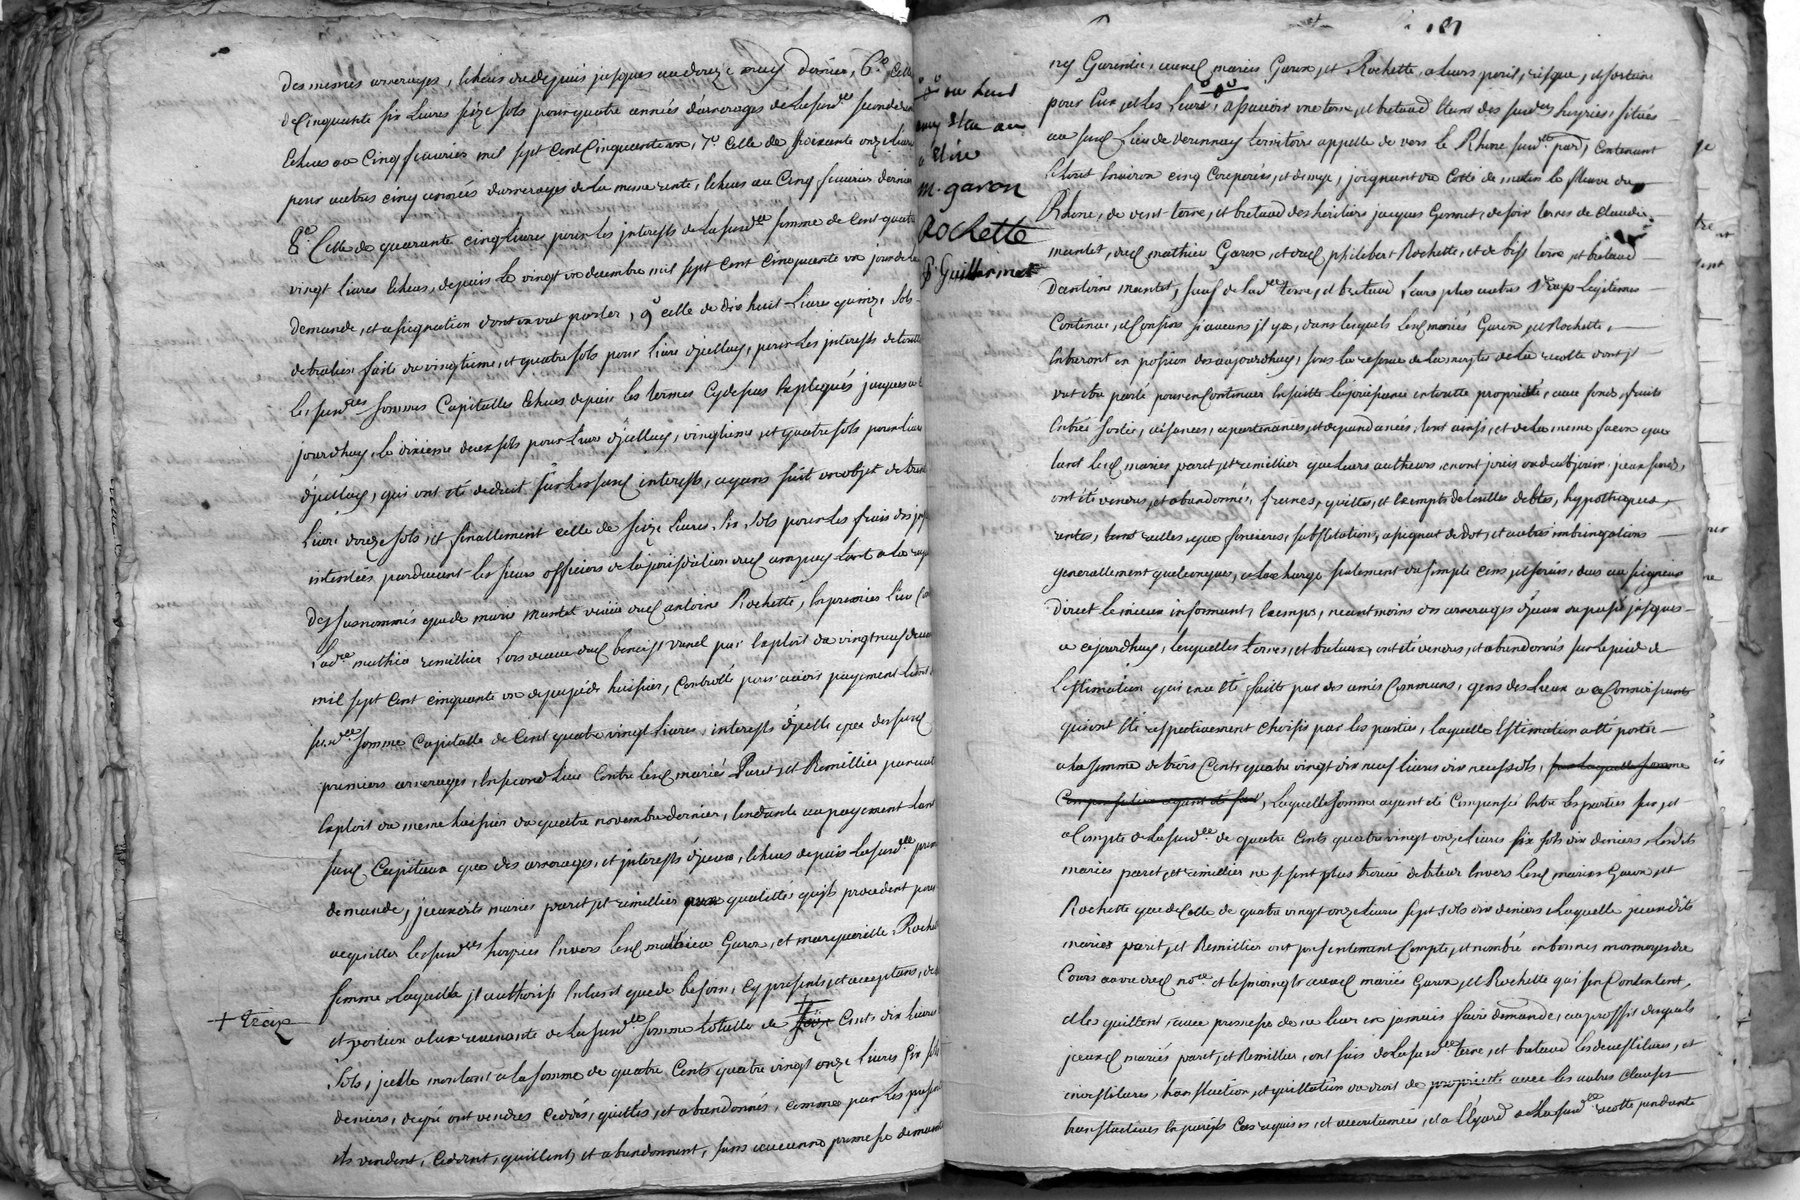 des mesmes arrerages, echeus du depuis jusques au douze may dernier, 6.° Celle
de Cinquante six Livres seize sols pour quatre années d'arrerages de la susd.te seconde
Echeus au Cinq fevrier mil sept Cent Cinquante un, 7.° Celle de soixante onze Livres
pour autres cinq années d'arrerages de la meme rente, Echeus au Cinq fevrier dernier
8.° Celle de quarante cinq Livres pour les interests de la susd.te somme de Cent quatre
vingt Livres Echeus, depuis le vingt un decembre mil sept Cent Cinquante un jour de la
demande, et assignation dont on vat parler, 9° celle de dix huit Livres quinze sols
detraction faite du vingtieme, et quatre sols pour Livre d'jcelluy, pour les interests de toutte
les susd.tes sommes Capitalles Echeus depuis les termes Cydessus Expliqués jusques a
jourdhuy, le dixieme deux sols pour Livre d'jcelluy, vingtieme, et quatre sols pour Livre
d'jcelluy, qui ont été deduit sur les susd interests, ayant fait un objet de trente
Livre douze sols, et finallement celle de seize Livres six sols pour les frais des
intentées, pardevant les sieurs officiers de la jurisdiction dud ampuy tant a la req
des susnommés que de marie mantet veuve dud antoine Rochette, En premier Lieu
Lad.te mathie remillier Lors veuve dud benoist vanel par Exploit du vingt neuf
mil sept cent cinquante un huissier, Controllé pour avoir payement tant
susd.te somme Capitalle de Cent quatre vingt Livres, interests d'jcelle que des susd
premiers arrerages, En second Lieu Contre lesd mariés Paret, et Remillier par
Exploit du meme huissier du quatre novembre dernier, tendante au payement tant
susd Capitaux que des arrerages, et interests d'jceux, Echeus depuis la susd.te
demande, jceux dits mariés paret et remillier qualittés qu'ils procedent pour
acquitter les susd.tes hoyries Envers lesd mathieu Garon, et marguerille Roche
femme Laquelle jl authorise Entant que de besoin, Cy presents, et acceptans,
et portion a lux revenante de la susd.te somme totalle de Cents dix Livres
+ treize
sols, jcelle montant a la somme de quatre Cents quatre vingt onze Livres six sols
deniers, degré ont vendus cedés, quittés, et abandonnés, comme par les presen
ils vendent, Cedent, quittent, et abandonnent, sans aucunne promesse de
ou haut
m. garon
Rochette
P. Guillermet
181
ny Garentie, auxd mariés Garon, et Rochette, a leurs peril, risque, et fortune
pour Eux et les Leurs, a scavoir une terre, et buttaud Etant des susd.es hoyries, situés
au susd Lieu de Verennay Territoire appellé de vers le Rhone susd.e pard, Contenant
Le tout Environ cinq Couperées, et demye, joignant du Cotté de matin le fleuve du
Rhone, de vent terre, et buttaud des héritiers jacques Gonnet, de soir terres de Claude
mantet, dud mathieu Garon, et dud philibert Rochette, et de bise terre et buttaud
D'antoine mantet, sauf de la d.te terre, et buttaud, Leurs plus autres Legitimes
Contenue, et Confins si aucuns jl y a, dans lesquels lesd mariés Garon et Rochette,
Entreront en possion des aujourdhuy, sous la reserve de la moytié de la recolte dont jl
vat etre parlé pour en Continuer Ensuitte La jouissance en toutte proprieté, avec fonds, fruits
Entrée sortie, aisances, apartenances, et depandances, tout ainsi, et de la meme facon que
tant lesd mariés paret et remillier que leurs autheurs, en ont jouis ou du jouir, jceux fonds,
ont été vendus, et abandonné, francs, quittes, et Exempts de touttes debtes, hypotheques,
rentes, tant réelles, que foncieres, substitutions, assignat de dot, et autres imbringations
generallement quelconques, a La charge seulement du simple cens, et servis, dues au seigneur
direct le mieux informant, Exempts, neantmoins des arrerages d'jceux du passé jusques
a aujourdhuy, lesquelles terres, et buttaux, ont été vendus, et abandonnés sur le pied de
L'estimation qui en a été faitte par des amis Communs, gens des Lieux a a Connoissants
qui ont été respectivement choisis par les parties, laquelle Estimation a été portée
a la somme de trois Cents quatre vingt dix neuf livres dix neuf sols, par laquelle somme
Compensation ayant été fait, Laquelle somme ayant été Compensée Entre les parties sur, et
a Compte de la susd.te de quatre Cents quatre vingt onze Livres six sols dix deniers, Lesdits
mariés paret, et remillier ne se sont plus trouvés debiteur Envers lesd mariés Garon, et
Rochette que de Celle de quatre vingt onze Livres sept sols dix deniers Laquelle jceux dits
mariés paret, et Remillier ont presentement Compté, et nombré en bonnes monnoyes de
Cours au vu dud no.re et temoings auxd mariés Garon, et Rochette qui s'en Contentent,
et les quittent, avec promesse de ne leur en jamais faire demande, au proffit desquels
jceuxd mariés paret, et Remillier, ont fais de la susd.te terre, et buttaud les devestitures, et
investitures, translation, et quittation du droit de proprieté avec les autres clauses
translatives En pareils Cas requises, et accoutumées, et a l'Egard de la susd.te recolte pendante